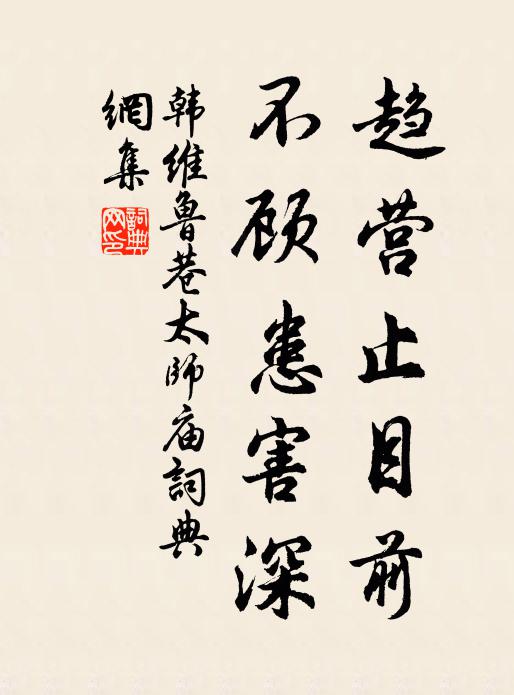 趋营止目前
不顾患害深
韩维鲁巷太師庙詞典
網集
詞典
网印